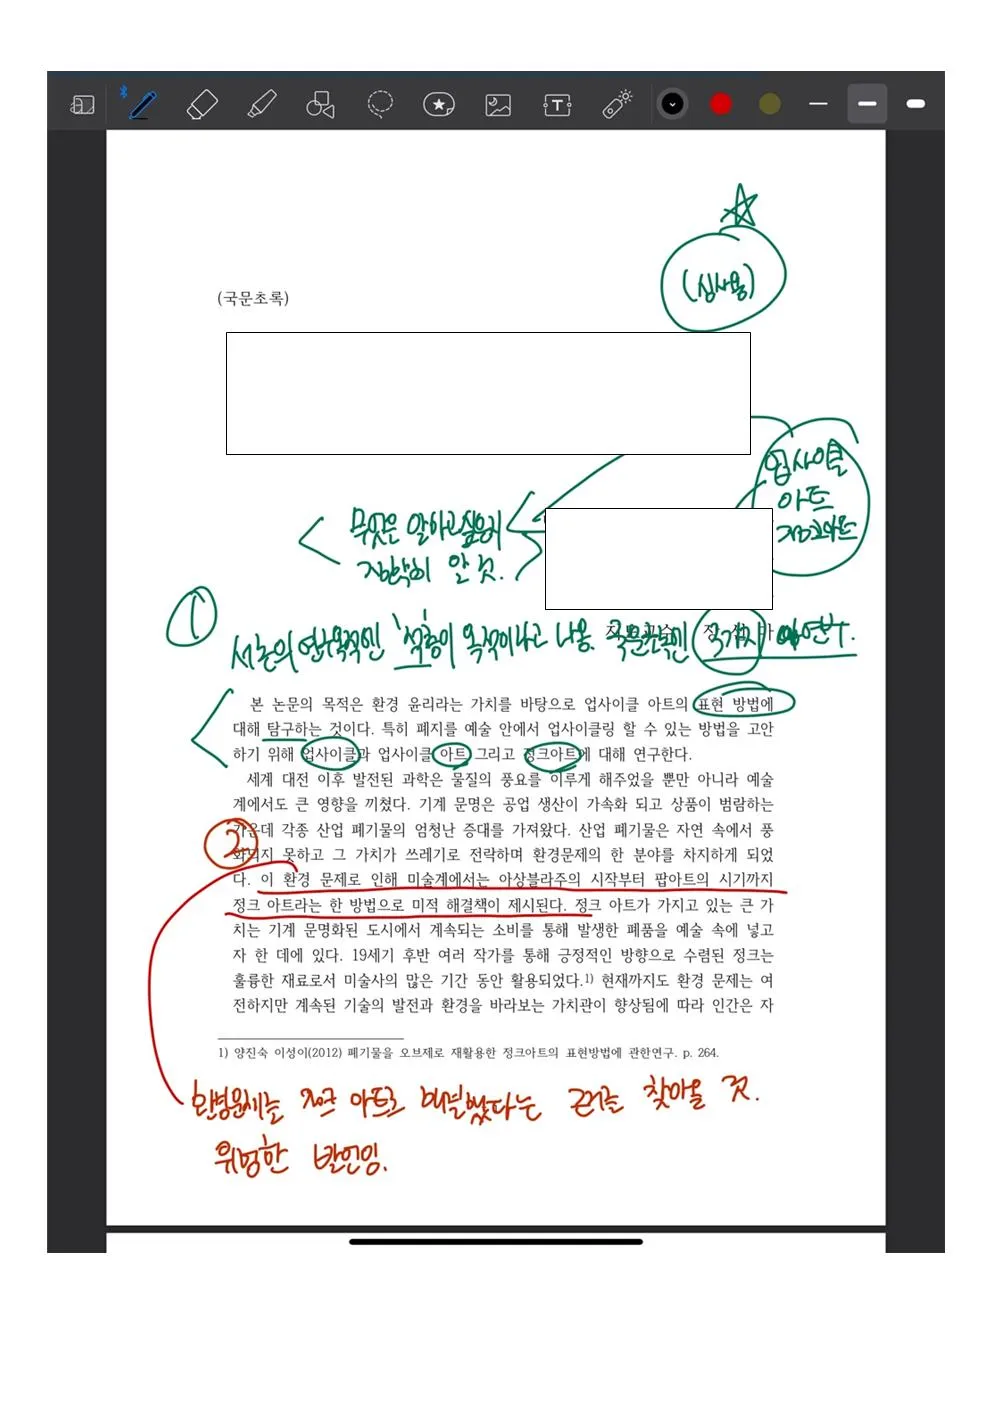 (심사용)
(국문초록)
업사이클
아트
정크아트
무엇은 알아고싶은지
정확히 알 것.
①
서론의 연구목적인 '적층이 목적이라고 나옴. 국문초록인
본 논문의 목적은 환경 윤리라는 가치를 바탕으로 업사이클 아트의 표현 방법에
대해 탐구하는 것이다. 특히 폐지를 예술 안에서 업사이클링 할 수 있는 방법을 고안
하기 위해 업사이클과 업사이클 아트 그리고 정크아트에 대해 연구한다.
세계 대전 이후 발전된 과학은 물질의 풍요를 이루게 해주었을 뿐만 아니라 예술
계에서도 큰 영향을 끼쳤다. 기계 문명은 공업 생산이 가속화 되고 상품이 범람하는
가운데 각종 산업 폐기물의 엄청난 증대를 가져왔다. 산업 폐기물은 자연 속에서 풍
②
화되지 못하고 그 가치가 쓰레기로 전락하며 환경문제의 한 분야를 차지하게 되었
다. 이 환경 문제로 인해 미술계에서는 아상블라주의 시작부터 팝아트의 시기까지
정크 아트라는 한 방법으로 미적 해결책이 제시된다. 정크 아트가 가지고 있는 큰 가
치는 기계 문명화된 도시에서 계속되는 소비를 통해 발생한 폐품을 예술 속에 넣고
자 한 데에 있다. 19세기 후반 여러 작가를 통해 긍정적인 방향으로 수렴된 정크는
훌륭한 재료로서 미술사의 많은 기간 동안 활용되었다.1) 현재까지도 환경 문제는 여
전하지만 계속된 기술의 발전과 환경을 바라보는 가치관이 향상됨에 따라 인간은 자
1) 양진숙 이성이(2012) 폐기물을 오브제로 재활용한 정크아트의 표현방법에 관한연구. p. 264.
환경문제는 정크 아트로 해결했다는 근거를 찾아올 것.
위험한 발언임.